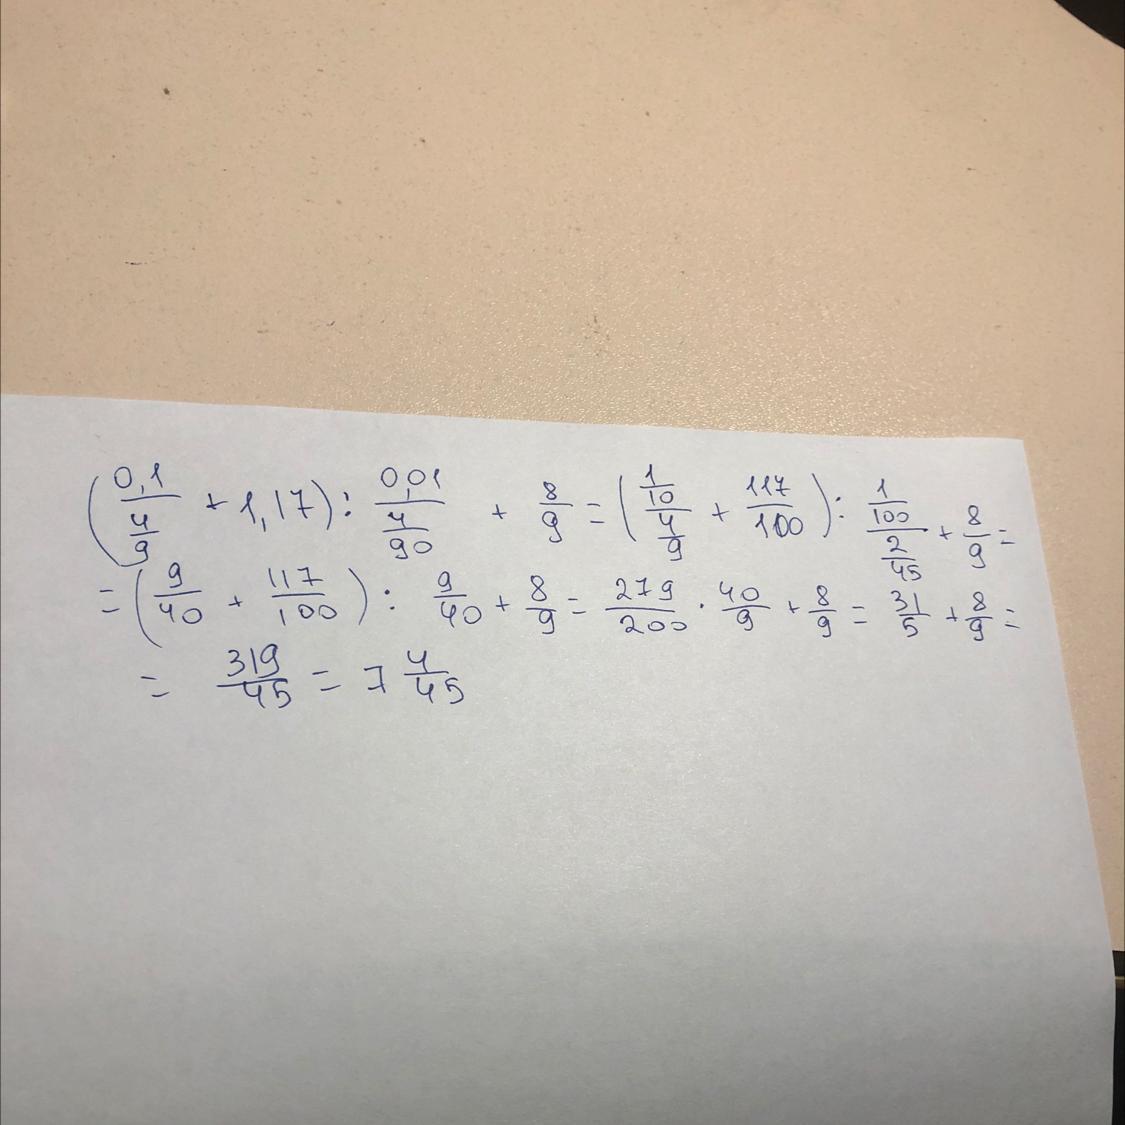 (0,1/(4/9) + 1,17) : 0,01/(4/90) + 8/9 = ((1/10)/(4/9) + 117/100) : (1/100)/(2/45) + 8/9 =
= (9/40 + 117/100) : 9/40 + 8/9 = 279/200 · 40/9 + 8/9 = 31/5 + 8/9 =
= 319/45 = 7 4/45